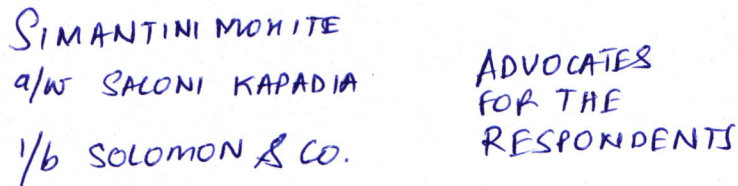 SIMANTINI MOHITE
a/w SALONI KAPADIA
i/b SOLOMON & CO.
ADVOCATES
FOR THE
RESPONDENTS